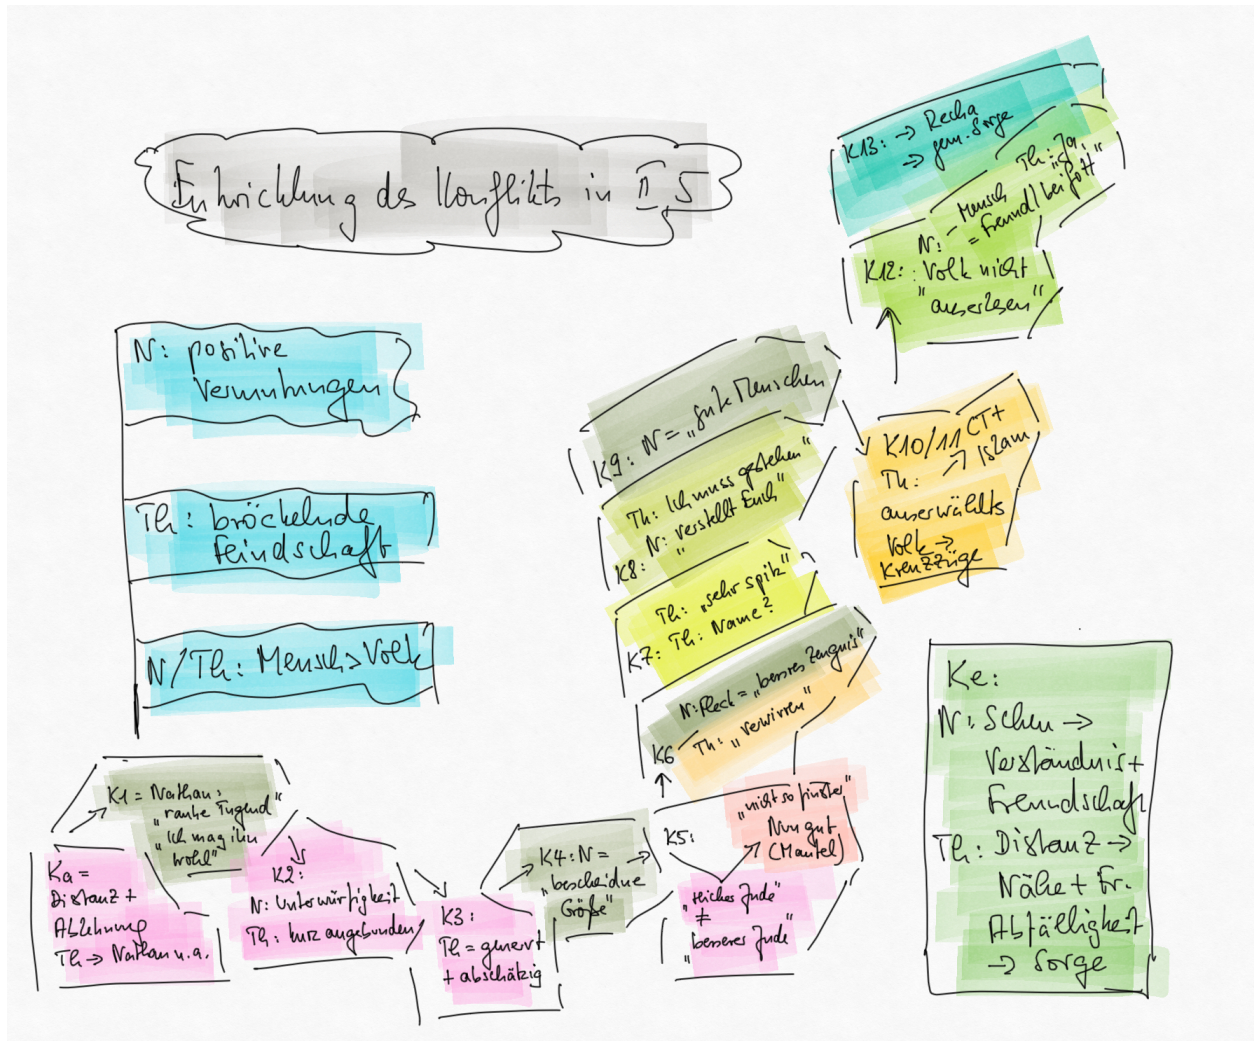 Entwicklung des Konflikts in II,5
N: positive
Vermutungen
Th: bröckelnde
Feindschaft
N/Th: Mensch > Volk
Ka =
Distanz +
Ablehnung
Th → Nathan u.a.
K1 = Nathan:
"rauhe Tugend"
"Ich mag ihn
wohl"
K2:
N: Unterwürfigkeit
Th: kurz angebunden
K3:
Th = genervt
+ abschätzig
K4: N =
"bescheidne
Größe"
K5:
"nicht so finster"
Nun gut
(Mantel)
"reicher Jude"
≠
"besserer Jude"
K6
N: Fleck = "bessres Zeugnis"
Th: "verwirren"
Th: "sehr spitz"
K7: Th: Name?
Th: Ich muss gestehen"
N: "verstellt Euch"
K8:
K9: N = "gute Menschen"
K10/11 CT+
Th: → Islam
auserwähltes
Volk →
Kreuzzüge
K12: Volk nicht
"auserlesen"
N: - Mensch
= Freund/
Th: "Ja,
bei Gott"
K13: → Recha
→ gem. Sorge
Ke:
N: Scheu →
Verständnis +
Freundschaft
Th: Distanz →
Nähe + Fr.
Abfälligkeit
→ Sorge